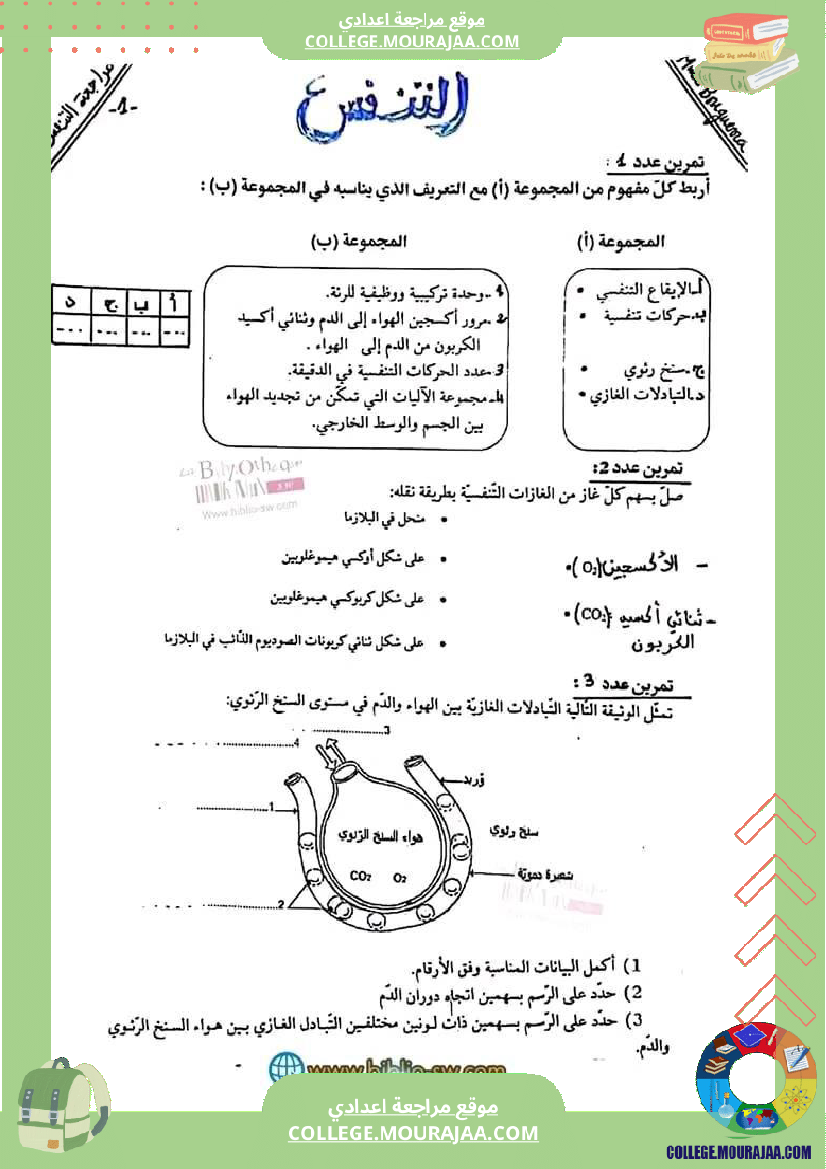 موقع مراجعة اعدادي
COLLEGE.MOURAJAA.COM
مراجعة
-1-
التنفس
تمرين عدد 1 :
أربط كلّ مفهوم من المجموعة (أ) مع التعريف الذي يناسبه في المجموعة (ب) :
المجموعة (أ)
أ-الإيقاع التنفسي •
ب-حركات تنفسية •
ج-سنخ رئوي •
د-التبادلات الغازي •
المجموعة (ب)
1-وحدة تركيبية ووظيفية للرئة.
2-مرور أكسجين الهواء إلى الدم وثنائي أكسيد
الكربون من الدم إلى الهواء .
3-عدد الحركات التنفسية في الدقيقة.
4-مجموعة الآليات التي تمكّن من تجديد الهواء
بين الجسم والوسط الخارجي.
أ ب ج د
--- --- --- ---
تمرين عدد 2:
صلّ بسهم كلّ غاز من الغازات التّنفسيّة بطريقة نقله:
• منحل في البلازما
• على شكل أوكسي هيموغلوبين
• على شكل كربوكسي هيموغلوبين
• على شكل ثنائي كربونات الصوديوم الذّائب في البلازما
- الأكسجين (O₂) •
- ثنائي أكسيد (CO₂) •
الكربون
تمرين عدد 3 :
تمثّل الوثيقة التّالية التّبادلات الغازيّة بين الهواء والدّم في مستوى السنخ الرّئوي:
3....................
4....................
وريد
1....................
هواء السنخ الرّئوي
سنخ رئوي
CO₂ O₂
شعيرة دموية
2....................
1) أكمل البيانات المناسبة وفق الأرقام.
2) حدّد على الرّسم بسهمين اتجاه دوران الدّم
3) حدّد على الرّسم بسهمين ذات لونين مختلفين التّبادل الغازي بين هواء السنخ الرّئوي
والدّم.
www.biblio-sw.com
موقع مراجعة اعدادي
COLLEGE.MOURAJAA.COM
COLLEGE.MOURAJAA.COM